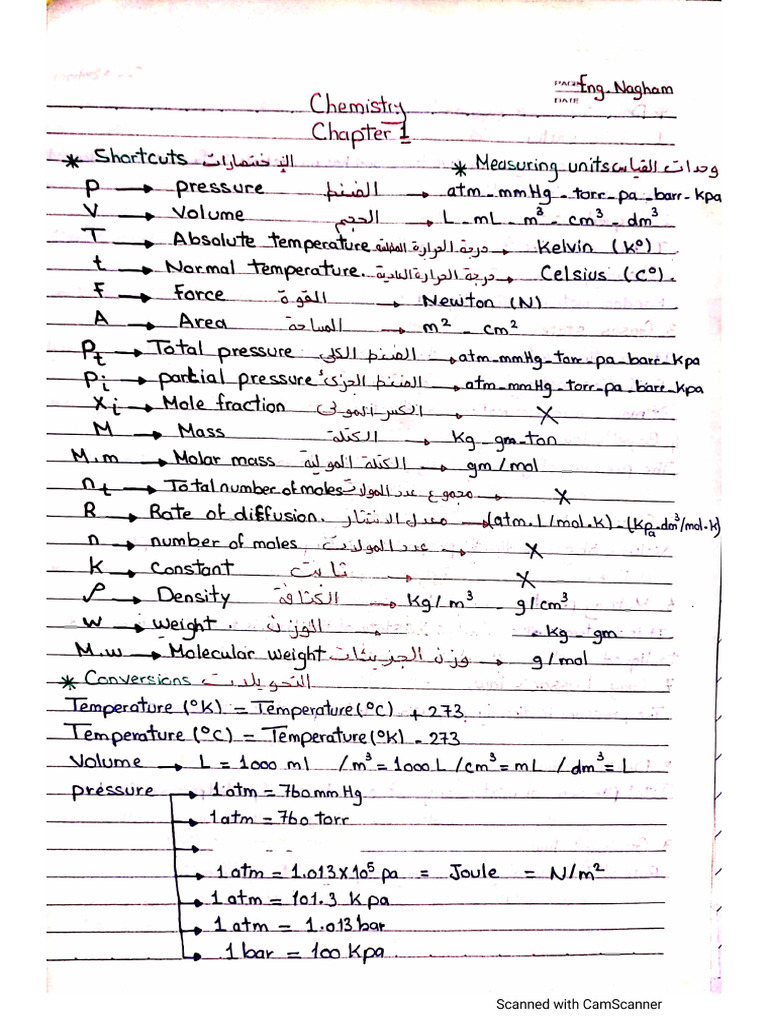 PAGE Eng. Nagham
DATE
Chemistry
Chapter 1
* Shortcuts الإختصارات * Measuring units وحدات القياس
P → pressure الضغط → atm - mmHg - torr - pa - barr - Kpa
V → Volume الحجم → L - mL - m³ - cm³ - dm³
T → Absolute temperature درجة الحرارة المطلقة → Kelvin (k°)
t → Normal temperature. درجة الحرارة العادية → Celsius (C°).
F → Force القوة → Newton (N)
A → Area المساحة → m² - cm²
Pt → Total pressure الضغط الكلي → atm - mmHg - torr - pa - barr - Kpa
Pi → partial pressure الضغط الجزئي → atm - mmHg - torr - pa - barr - Kpa
Xi → Mole fraction الكسر المولي → X
M → Mass الكتلة → Kg - gm - ton
M.m → Molar mass الكتلة المولية → gm/mol
nt → Total number of moles مجموع عدد المولات → X
R → Rate of diffusion. معدل الانتشار → (atm.L/mol.k) - (Kpa.dm³/mol.k)
n → number of moles عدد المولات → X
k → Constant ثابت → X
ρ → Density الكثافة → Kg/m³ - g/cm³
w → weight . الوزن → . Kg - gm
M.w → Molecular weight وزن الجزيئات → g/mol
* Conversions التحويلات
Temperature (°K) = Temperature (°C) + 273
Temperature (°C) = Temperature (°K) - 273
Volume → L = 1000 ml / m³ = 1000 L / cm³ = mL / dm³ = L
pressure → 1 atm = 760 mm Hg
→ 1 atm = 760 torr
→
→ 1 atm = 1.013×10⁵ pa = Joule = N/m²
→ 1 atm = 101.3 K pa
→ 1 atm = 1.013 bar
→ 1 bar = 100 Kpa
Scanned with CamScanner